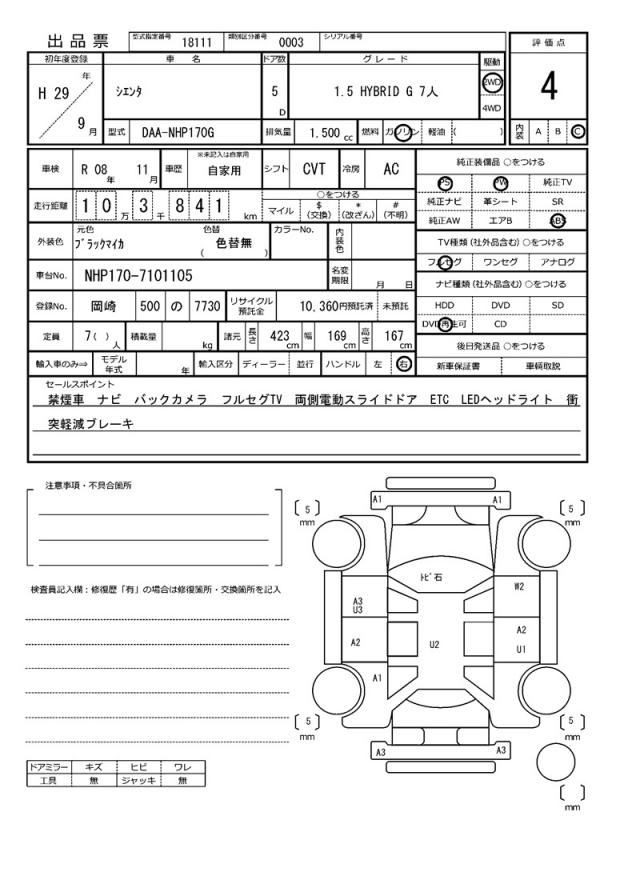 出品票
型式指定番号 18111 類別区分番号 0003 シリアル番号
評価点
4
内装 A B C
初年度登録 車名 ドア数 グレード 駆動
H 29 年 9 月
シエンタ
5 D
1.5 HYBRID G 7人
2WD
4WD
型式 DAA-NHP170G 排気量 1.500 cc 燃料 ガソリン 軽油 ( )
車検 R 08 年 11 月 車歴 ※未記入は自家用 自家用 シフト CVT 冷房 AC
走行距離 1 0 万 3 千 8 4 1 km
○をつける
マイル $(交換) *(改ざん) #(不明)
外装色 元色 ブラックマイカ 色替 ( 色替無 ) カラーNo. 内装色
車台No. NHP170-7101105 名変期限 月 日
登録No. 岡崎 500 の 7730 リサイクル預託金 10,360円預託済 未預託
定員 7( ) 人 積載量 kg 諸元 長さ 423 cm 幅 169 cm 高さ 167 cm
輸入車のみ⇒ モデル年式 年 輸入区分 ディーラー 並行 ハンドル 左 右
純正装備品 ○をつける
PS PW 純正TV
純正ナビ 革シート SR
純正AW エアB ABS
TV種類 (社外品含む) ○をつける
フルセグ ワンセグ アナログ
ナビ種類 (社外品含む) ○をつける
HDD DVD SD
DVD再生可 CD
後日発送品 ○をつける
新車保証書 車輌取説
セールスポイント
禁煙車 ナビ バックカメラ フルセグTV 両側電動スライドドア ETC LEDヘッドライト 衝
突軽減ブレーキ
注意事項・不具合箇所
検査員記入欄：修復歴「有」の場合は修復箇所・交換箇所を記入
ドアミラー キズ ヒビ ワレ
工具 無 ジャッキ 無
A1 A1
[ 5 ] mm [ 5 ] mm
トビ石
W2
A3
U3
A2
A2 U2
U1
A1
[ 5 ] mm [ 5 ] mm
A3 A3
[ ] mm